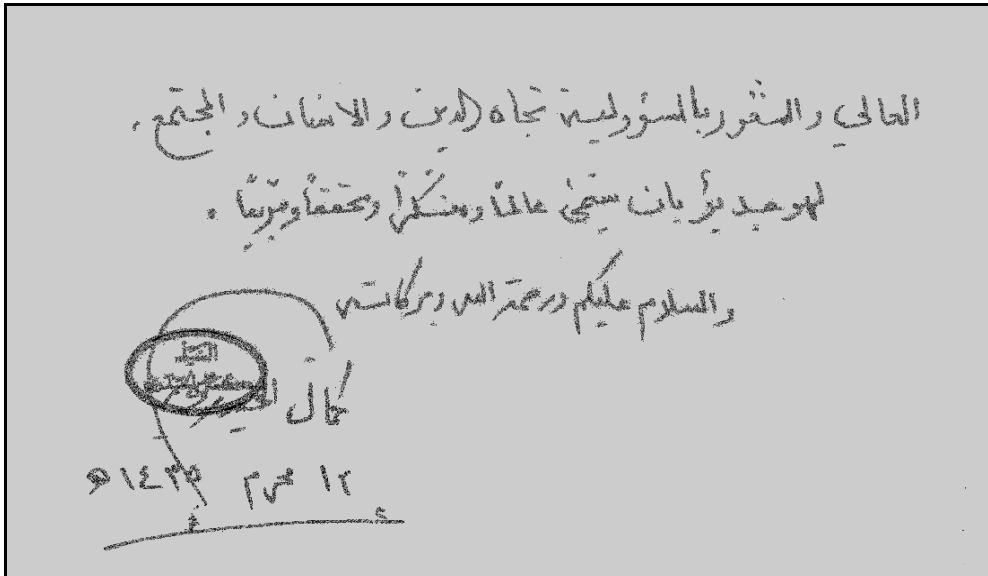 العالي والشعور بالمسؤولية تجاه الدين والانسان والمجتمع.
لهو جدير بأن عالماً ومفكراً ومحققاً ومربياً.
والسلام عليكم ورحمة الله وبركاته
كمال
١٢ محرم ١٤٣٥هـ